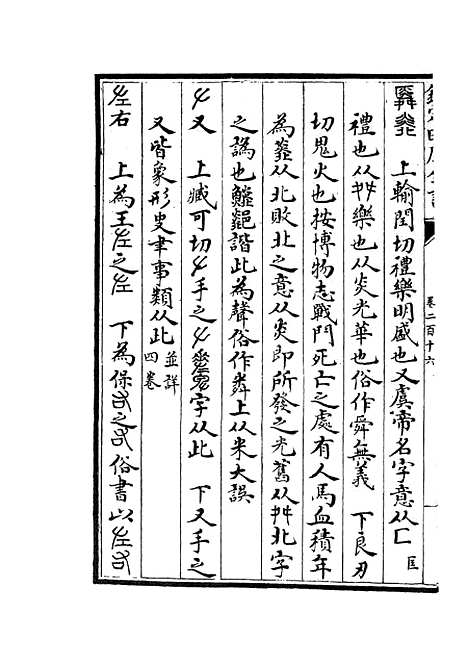 欽定四庫全書
卷二百十六
上輸閏切禮樂明盛也又虞帝名字意从匚匡
禮也从艸樂也从炎光華也俗作舜無義　下良刃
切鬼火也按博物志戰鬥死亡之處有人馬血積年
為㷠从北敗北之意从炎即所發之光舊从艸北字
之譌也諧此為聲俗作粦上从米大誤
𠂇又　上臧可切𠂇手之𠂇字从此　下又手之
又皆象形史聿事類从此並詳四卷
左右　上為王左之左　下為保右之右俗書以左右